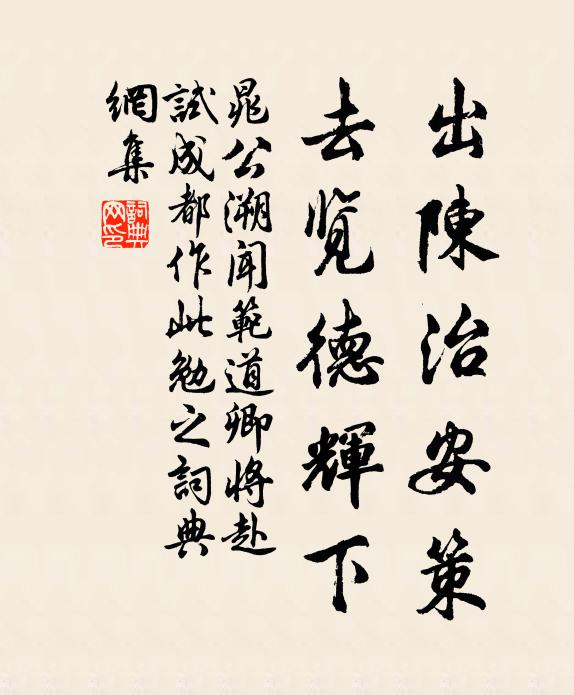 出陳治安策
去覽德輝下
晁公溯聞範道卿將赴
試成都作此勉之詞典
網集
詞典
网印